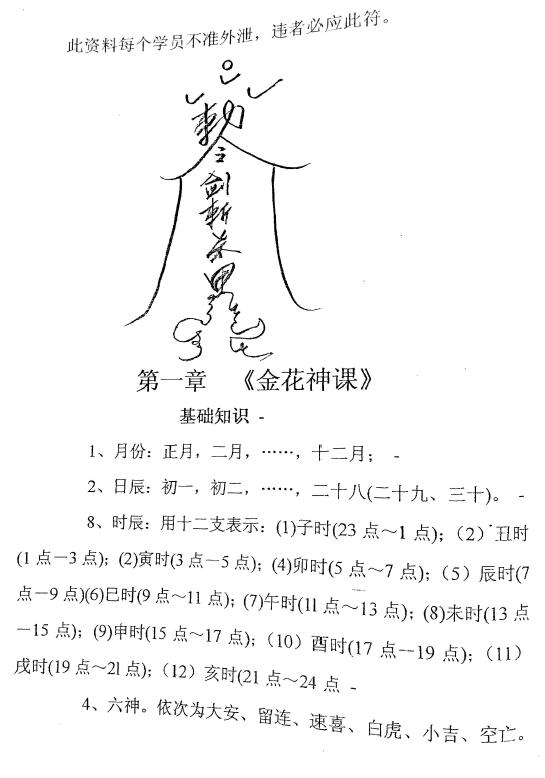 此资料每个学员不准外泄，违者必应此符。
勅
令
剑
斩
第一章 《金花神课》
基础知识 -
1、月份：正月，二月，……，十二月； -
2、日辰：初一，初二，……，二十八(二十九、三十)。 -
8、时辰：用十二支表示：(1)子时(23 点～1 点)；（2）丑时
(1 点－3 点)；(2)寅时(3 点－5 点)；(4)卯时(5 点～7 点)；（5）辰时(7
点－9 点)(6)巳时(9 点～11 点)；(7)午时(11 点～13 点)；(8)未时(13 点
－15 点)；(9)申时(15 点～17 点)；（10）酉时(17 点－19 点)；（11）
戌时(19 点～21 点)；（12）亥时(21 点～24 点 -
4、六神。依次为大安、留连、速喜、白虎、小吉、空亡。